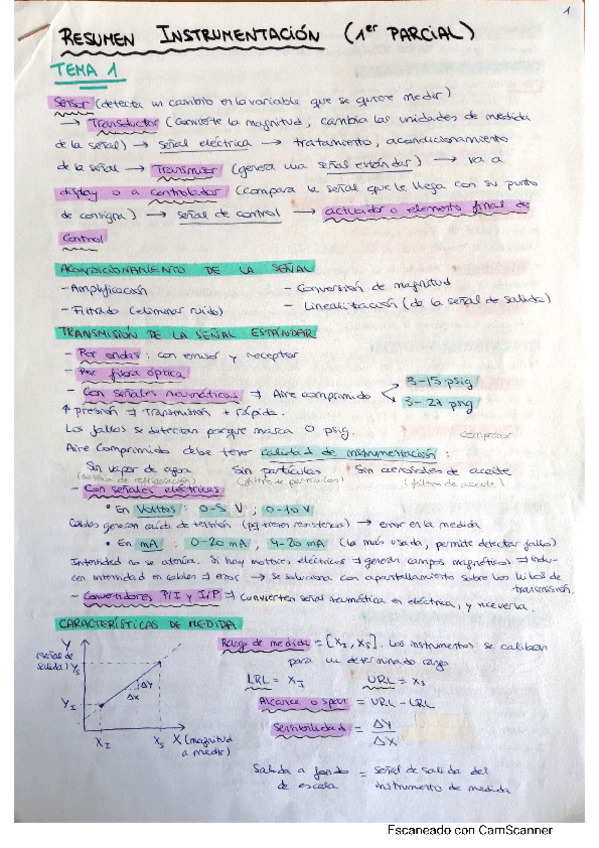 1
RESUMEN INSTRUMENTACIÓN (1er PARCIAL)
TEMA 1
Sensor (detecta un cambio en la variable que se quiere medir)
→ Transductor (convierte la magnitud, cambia las unidades de medida
de la señal) → señal eléctrica → tratamiento, acondicionamiento
de la señal → Transmisor (genera una señal estándar) → va a
display o a controlador (compara la señal que le llega con su punto
de consigna) → señal de control → actuador o elemento final de
control
ACONDICIONAMIENTO DE LA SEÑAL
- Amplificación - Conversión de magnitud
- Filtrado (eliminar ruido) - Linealización (de la señal de salida)
TRANSMISIÓN DE LA SEÑAL ESTÁNDAR
- Por ondas: con emisor y receptor
- Por fibra óptica
- Con señales neumáticas ⇒ Aire comprimido 3-15 psig
3-27 psig
↑ presión ⇒ transmisión + rápida.
Los fallos se detectan porque marca 0 psig.
compresor
Aire comprimido debe tener calidad de instrumentación:
Sin vapor de agua Sin partículas Sin aerosoles de aceite
(sistema de refrigeración) (filtro de partículas) (filtros de aceite)
- Con señales eléctricas
• En Voltios: 0-5 V; 0-10 V
Cables generan caída de tensión (pq tienen resistencia) → error en la medida
• En mA: 0-20 mA, 4-20 mA (la más usada, permite detectar fallos)
Intensidad no se atenúa. Si hay motores eléctricos ⇒ generan campos magnéticos ⇒ indu-
cen intensidad en cables ⇒ error → se soluciona con apantallamiento sobre los hilos de
transmisión.
- Convertidores P/I y I/P ⇒ convierten señal neumática en eléctrica, y viceversa.
CARACTERÍSTICAS DE MEDIDA
Y
(señal de
salida) Ys
YI
ΔY
ΔX
XI Xs X (magnitud
a medir)
Rango de medida = [XI, Xs]. Los instrumentos se calibran
para un determinado rango
LRL = XI URL = Xs
Alcance o span = URL - LRL
Sensibilidad = ΔY
ΔX
Salida a fondo = señal de salida del
de escala instrumento de medida
Escaneado con CamScanner